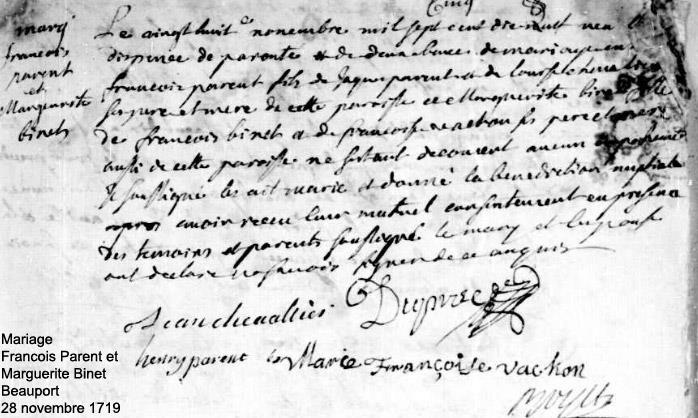 mary
francois
parent
et
Marguerite
binet
Le vingt huit e novembre mil sept cent dix neuf veu la
dispense de parente et de deux bancs de mariage en
francois parent fils de Jaque parent et de Louise chevalier
ses pere et mere de cette paroisse et Marguerite binet fille
de francois binet et de francoise vachon ses pere et mere
aussi de cette paroisse ne sestant decouvert aucun empechement
Je soussigné les ait marié et donné la benediction nuptiale
apres avoir receu leur mutuel consentement en presence
des temoins et parents soussigné le mary et lepouse
ont declare ne scavoir signer de ce enquis
Jean chevallier Dupre
henry parent Marie Françoise vachon
Mariage
Francois Parent et
Marguerite Binet
Beauport
28 novembre 1719